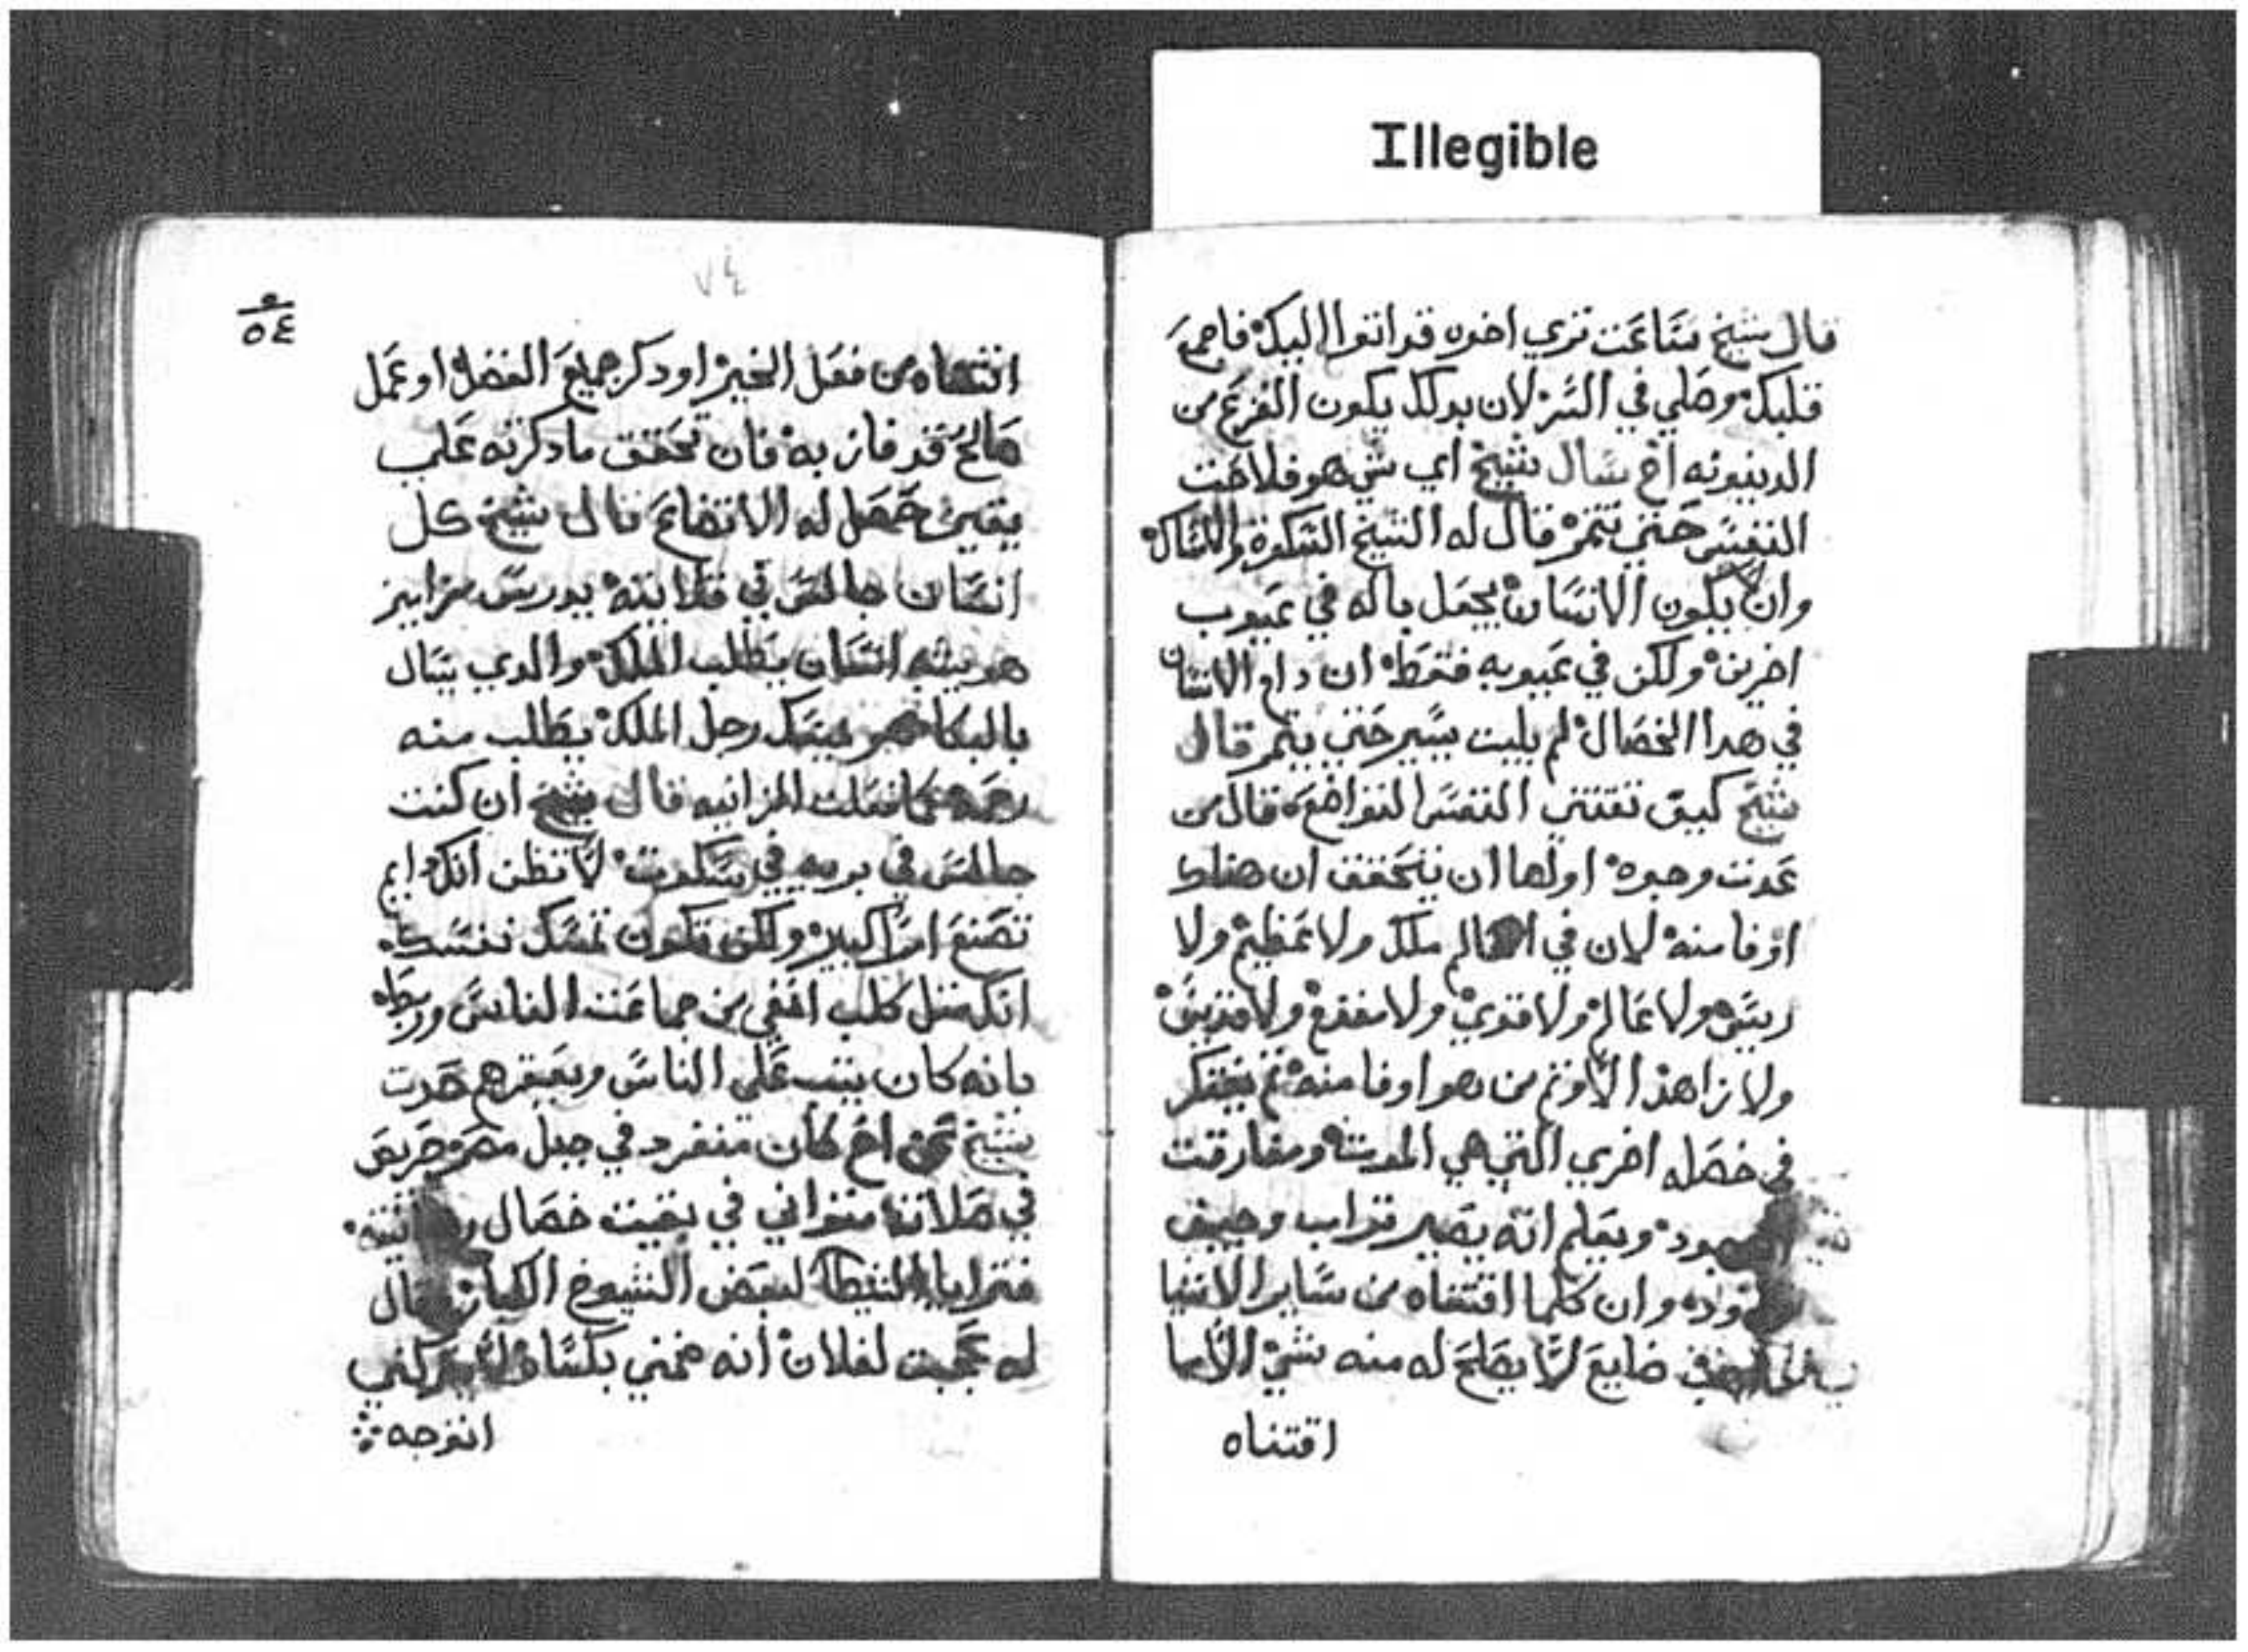 Illegible
قال شيخ ساعت تري اخوه قد اتوا اليك فاجمع
قلبك وصلي في السر لان بدلك يكون الفزع من
الدينونه اخ سال شيخ اي شي هو فلاحت
النفس حتي تتمر قال له الشيخ السكوة والنساك
وان لا يكون الانسان يجعل باله في عيوب
اخرين ولكن في عيوبه فقط ان دام الانسان
في هدا الخصال لم يلبت يسير حتي يتمر قال
شيخ كيف تقتني النفس التواضع قال من
عدت وجوه اولها ان يتحقق ان هناك
اوفا منه لان في العالم ملك ولا عظيم ولا
ريس ولا عالم ولا قوي ولا مفزع ولا قديس
ولا زاهد الا وتم من هو اوفا منه تم يفتكر
في خصله اخري التي هي الموت ومفارقت
ويعلم انه يصير تراب وجيف
وان كلما اقتناه من ساير الاشيا
ضايع لا يصلح له منه شي الا ما
اقتناه
٧٤
٥٤
اقتناه من فعل الخير او دكر جميع الفضل او عمل
صالح قد فاز به فان تحقق ما دكرته علي
يقين حصل له الاتضاع قال شيخ كل
انسان جالس في قلايته يدرس مزامير
هو يشبه انسان يطلب الملك والدي يسال
بالبكا هو يمسك رجل الملك يطلب منه
رحمه كما فعلت الزانيه قال شيخ ان كنت
جالس في بريه في سكوت لا تظن انك
تصنع امرا كبير ولكن تكون تمسك نفسك
انك متل كلب انفي من جماعت الناس وربطه
بانه كان يتب علي الناس ويعقرهم حدت
شيخ عن اخ كان منفرد في جبل مصر وحريص
في صلاته متواني في بقيت خصال
فترايا الشيطان لبعض الشيوخ الكبار قال
له عجبت لفلان انه ضمني
اتوجه